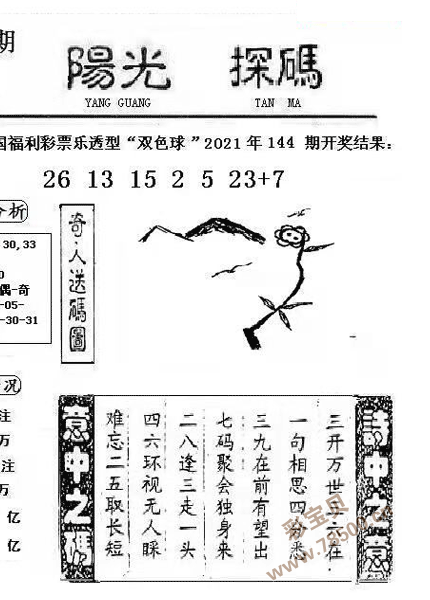 期
陽光 探碼
YANG GUANG TAN MA
国福利彩票乐透型“双色球”2021年144 期开奖结果：
26 13 15 2 5 23+7
分析
30,33
0
偶-奇
-05-
-30-31
奇·人送碼圖
况
注
万
注
万
亿
亿
詩中之意
三开万世五六在
一句相思四分悉
三九在前有望出
七码聚会独身来
二八逢三走一头
四六环视无人睬
难忘二五取长短
意中之碼
彩宝贝
www.78500.cn